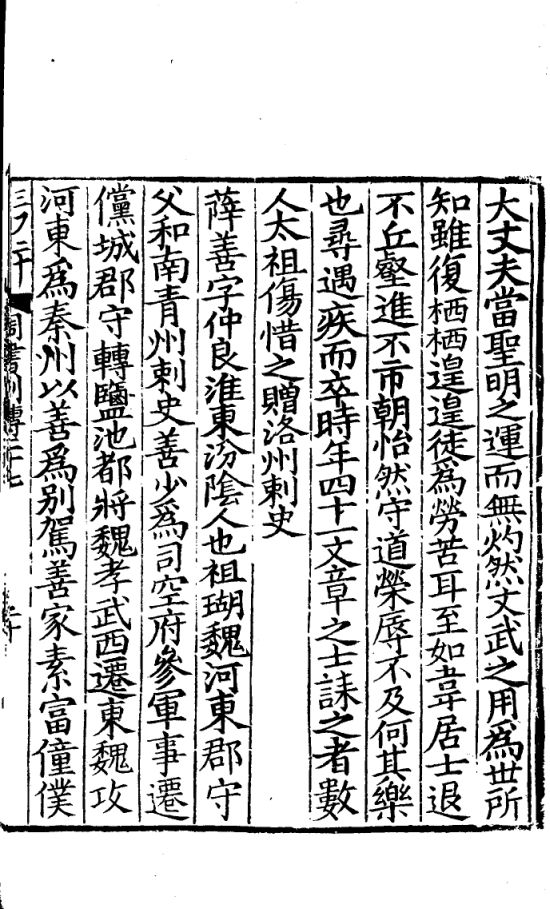 大丈夫當聖明之運而無灼然文武之用爲世所
知雖復栖栖遑遑徒爲勞苦耳至如韋居士退
不丘壑進不市朝怡然守道榮辱不及何其樂
也尋遇疾而卒時年四十一文章之士誄之者數
人太祖傷惜之贈洛州刺史
薛善字仲良淮東汾陰人也祖瑚魏河東郡守
父和南青州刺史善少爲司空府參軍事遷
儻城郡守轉鹽池都將魏孝武西遷東魏攻
河東爲秦州以善爲别駕善家素富僮僕
周書列傳二十七